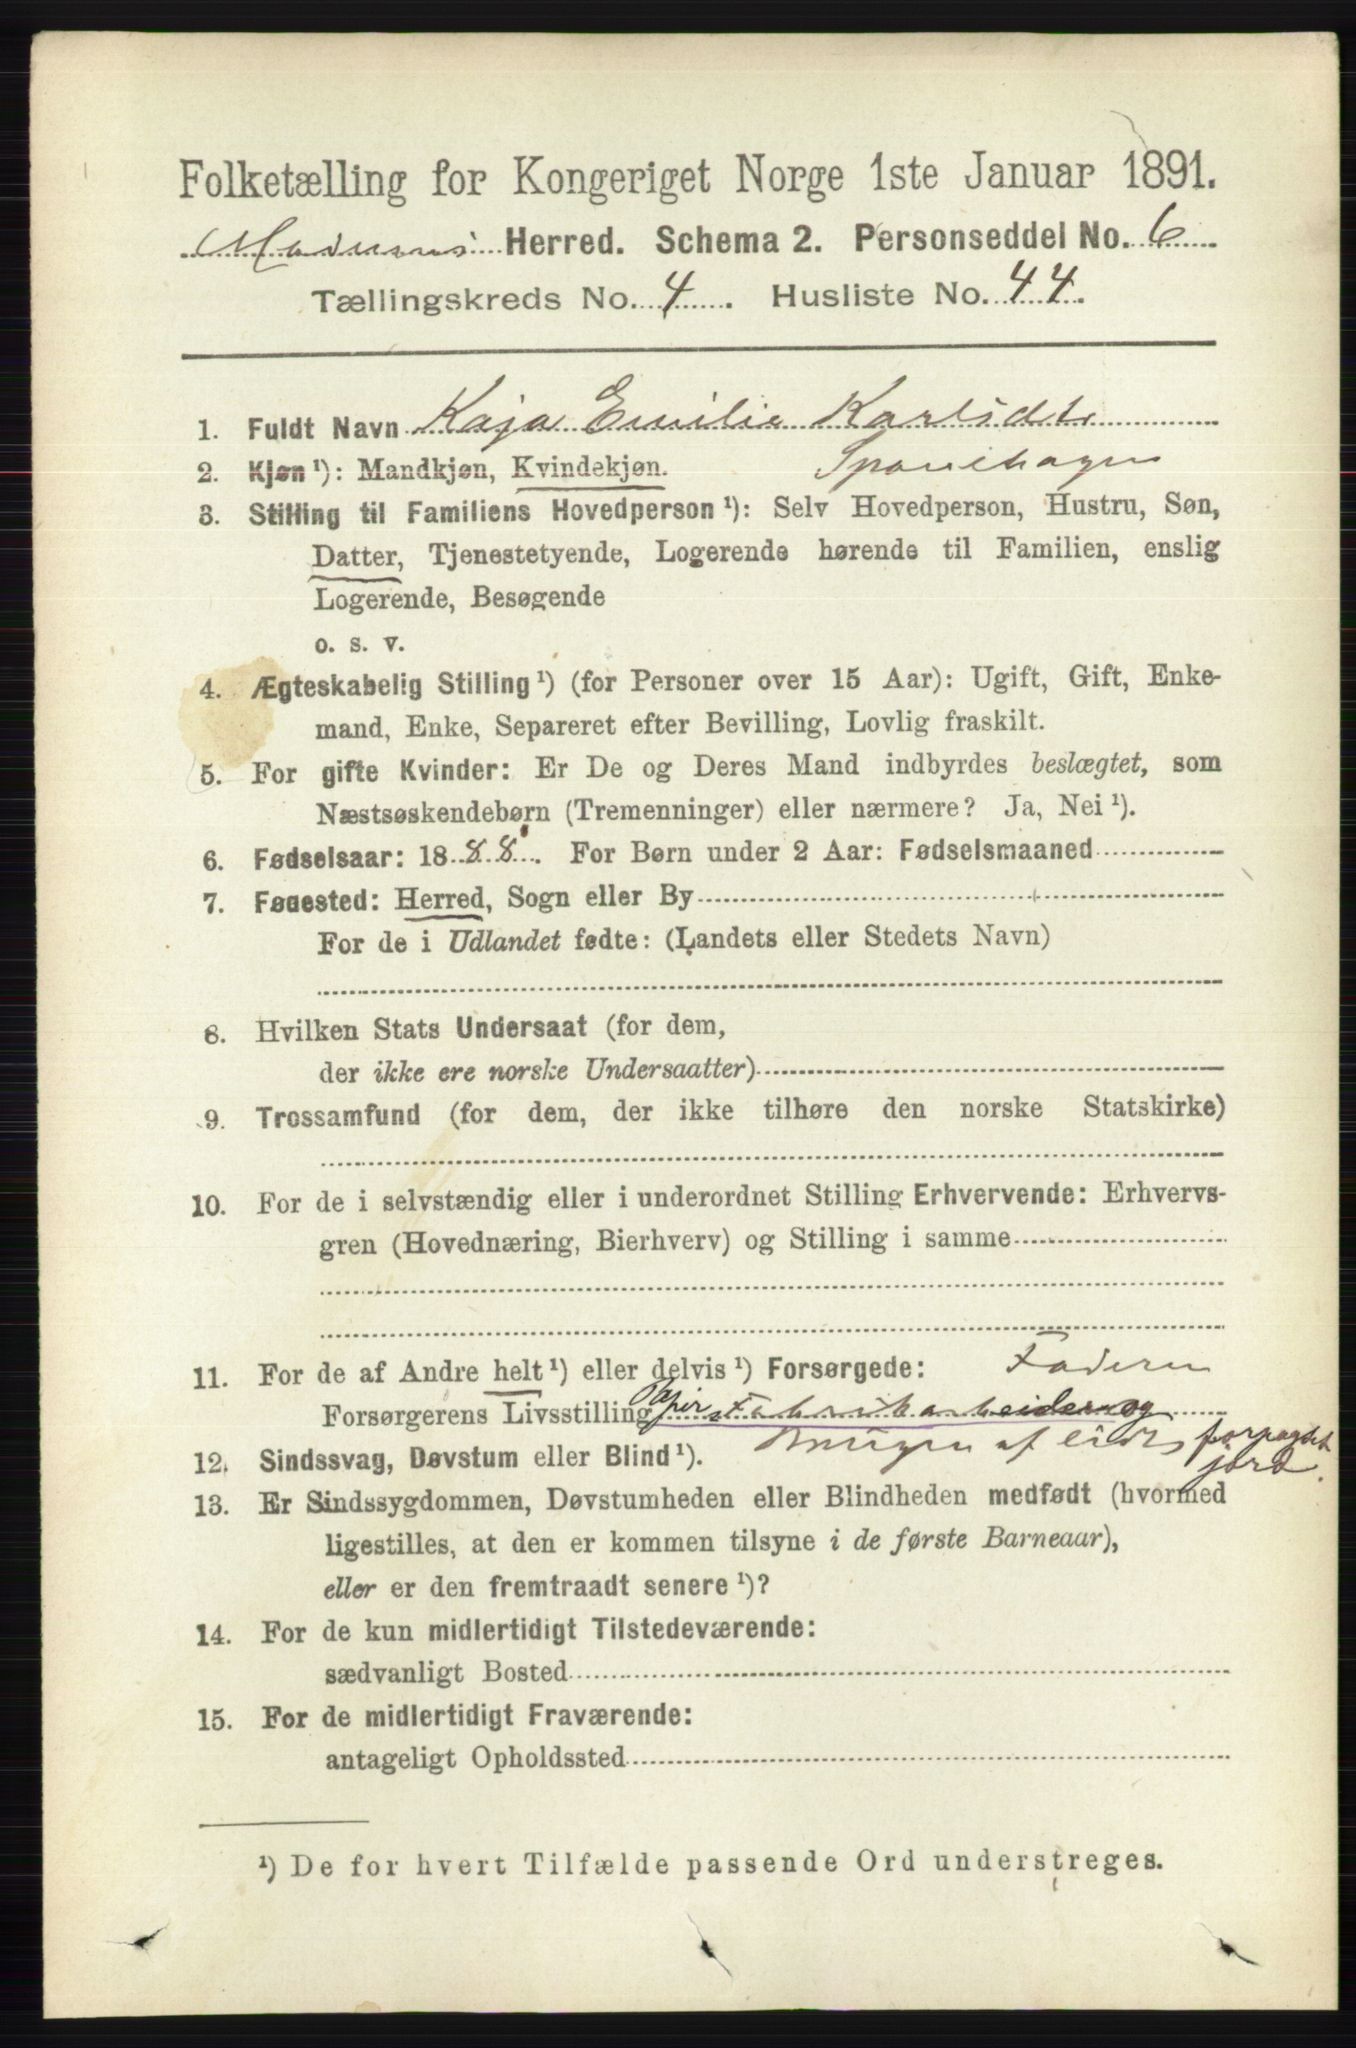 Folketælling for Kongeriget Norge 1ste Januar 1891.
Modums Herred. Schema 2. Personseddel No. 6
Tællingskreds No. 4. Husliste No. 44.
1. Fuldt Navn Kaja Emilie Karlsdtr
2. Kjøn ¹): Mandkjøn, Kvindekjøn. Sponehagen
3. Stilling til Familiens Hovedperson ¹): Selv Hovedperson, Hustru, Søn,
Datter, Tjenestetyende, Logerende hørende til Familien, enslig
Logerende, Besøgende
o. s. v.
4. Ægteskabelig Stilling ¹) (for Personer over 15 Aar): Ugift, Gift, Enke-
mand, Enke, Separeret efter Bevilling, Lovlig fraskilt.
5. For gifte Kvinder: Er De og Deres Mand indbyrdes beslægtet, som
Næstsøskendebørn (Tremenninger) eller nærmere? Ja, Nei ¹).
6. Fødselsaar: 1888. For Børn under 2 Aar: Fødselsmaaned
7. Fødested: Herred, Sogn eller By
For de i Udlandet fødte: (Landets eller Stedets Navn)
8. Hvilken Stats Undersaat (for dem,
der ikke ere norske Undersaatter)
9. Trossamfund (for dem, der ikke tilhøre den norske Statskirke)
10. For de i selvstændig eller i underordnet Stilling Erhvervende: Erhvervs-
gren (Hovednæring, Bierhverv) og Stilling i samme
11. For de af Andre helt ¹) eller delvis ¹) Forsørgede: Faderen
Forsørgerens Livsstilling Papir Fabrikarbeider og
bruger af lidt forpagtet
jord.
12. Sindssvag, Døvstum eller Blind ¹).
13. Er Sindssygdommen, Døvstumheden eller Blindheden medfødt (hvormed
ligestilles, at den er kommen tilsyne i de første Barneaar),
eller er den fremtraadt senere ¹)?
14. For de kun midlertidigt Tilstedeværende:
sædvanligt Bosted
15. For de midlertidigt Fraværende:
antageligt Opholdssted
¹) De for hvert Tilfælde passende Ord understreges.